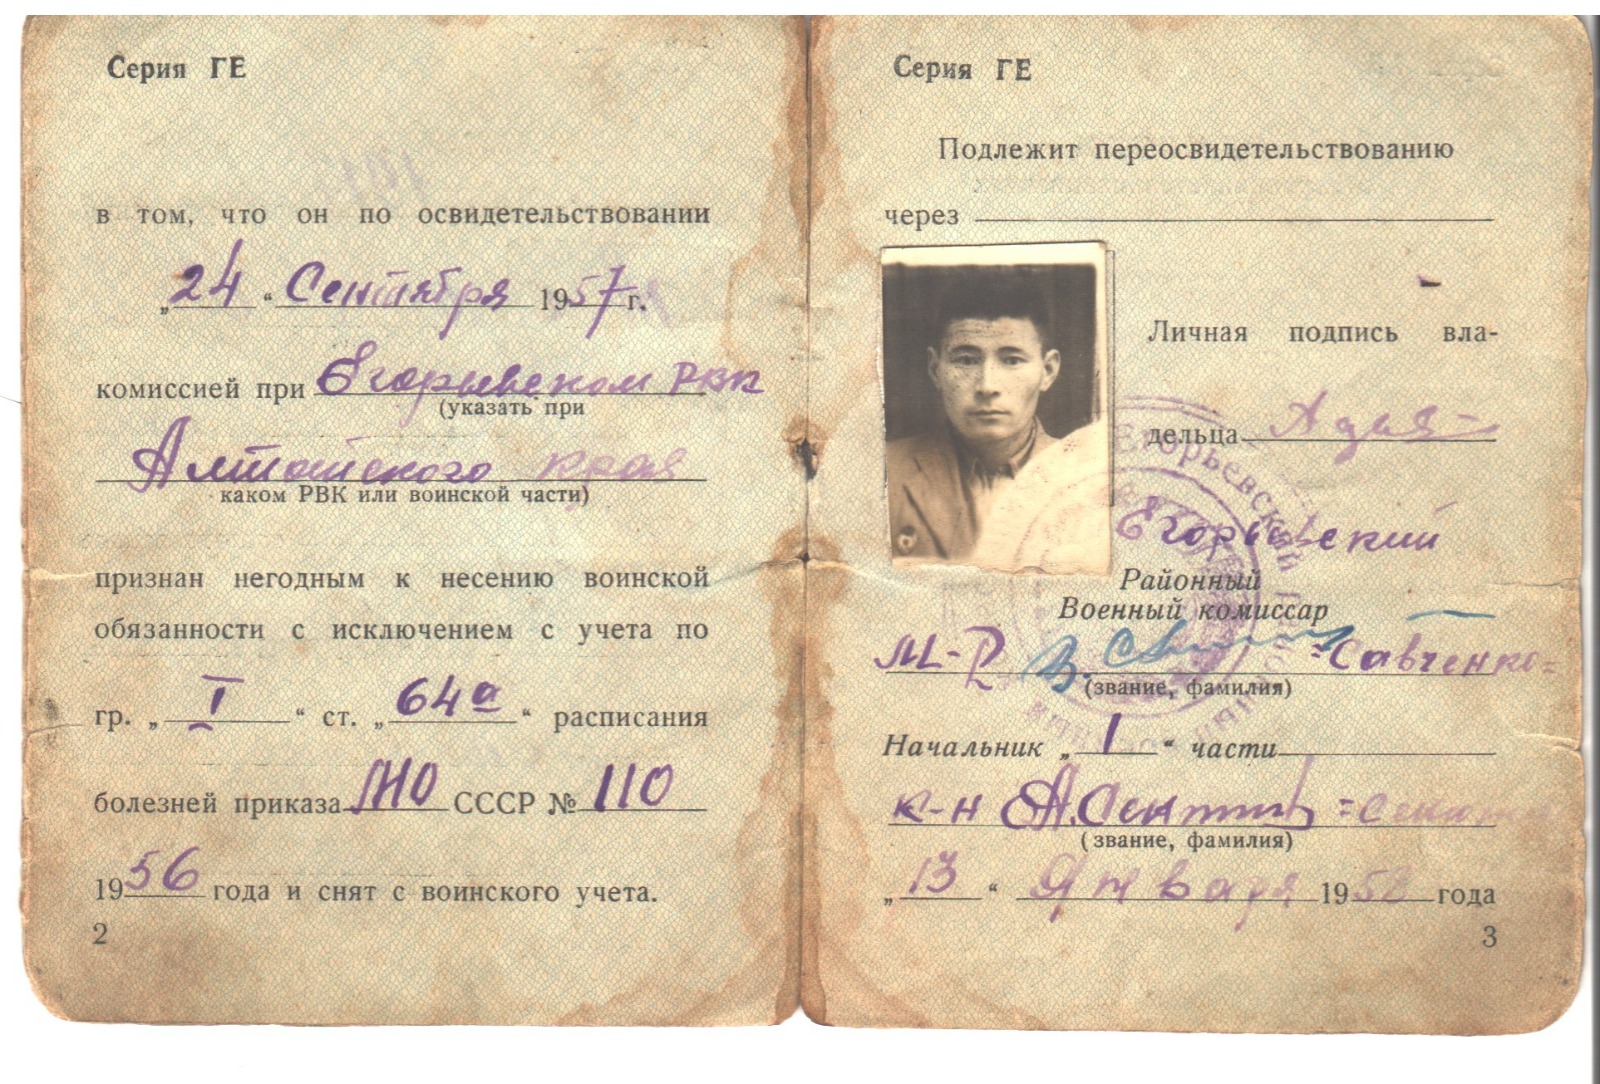 Серия ГЕ
в том, что он по освидетельствовании
„24“ Сентября 1957 г.
комиссией при Егорьевском РВК
(указать при
Алтайского края
каком РВК или воинской части)
признан негодным к несению воинской
обязанности с исключением с учета по
гр. „I“ ст. „64а“ расписания
болезней приказа МО СССР № 110
1956 года и снят с воинского учета.
2
Серия ГЕ
Подлежит переосвидетельствованию
через
Личная подпись вла-
дельца
Егорьевский
Районный
Военный комиссар
м-р =Савченко=
(звание, фамилия)
Начальник „1“ части
к-н
(звание, фамилия)
„13“ Января 1958 года
3